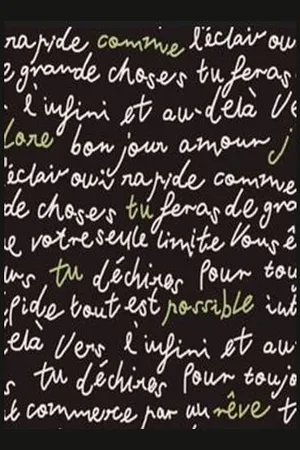 rapide comme l'éclair ou
e grande choses tu feras
l'infini et au-delà Ve
lore bon jour amour j
l'éclair ouï rapide comme
de choses tu feras de gra
e votre seule limite Vous ê
urs tu déchires Pour tou
pide tout est possible int
elà Vers l'infini et au-
tu déchires Pour toujo
t commerce par un rêve t